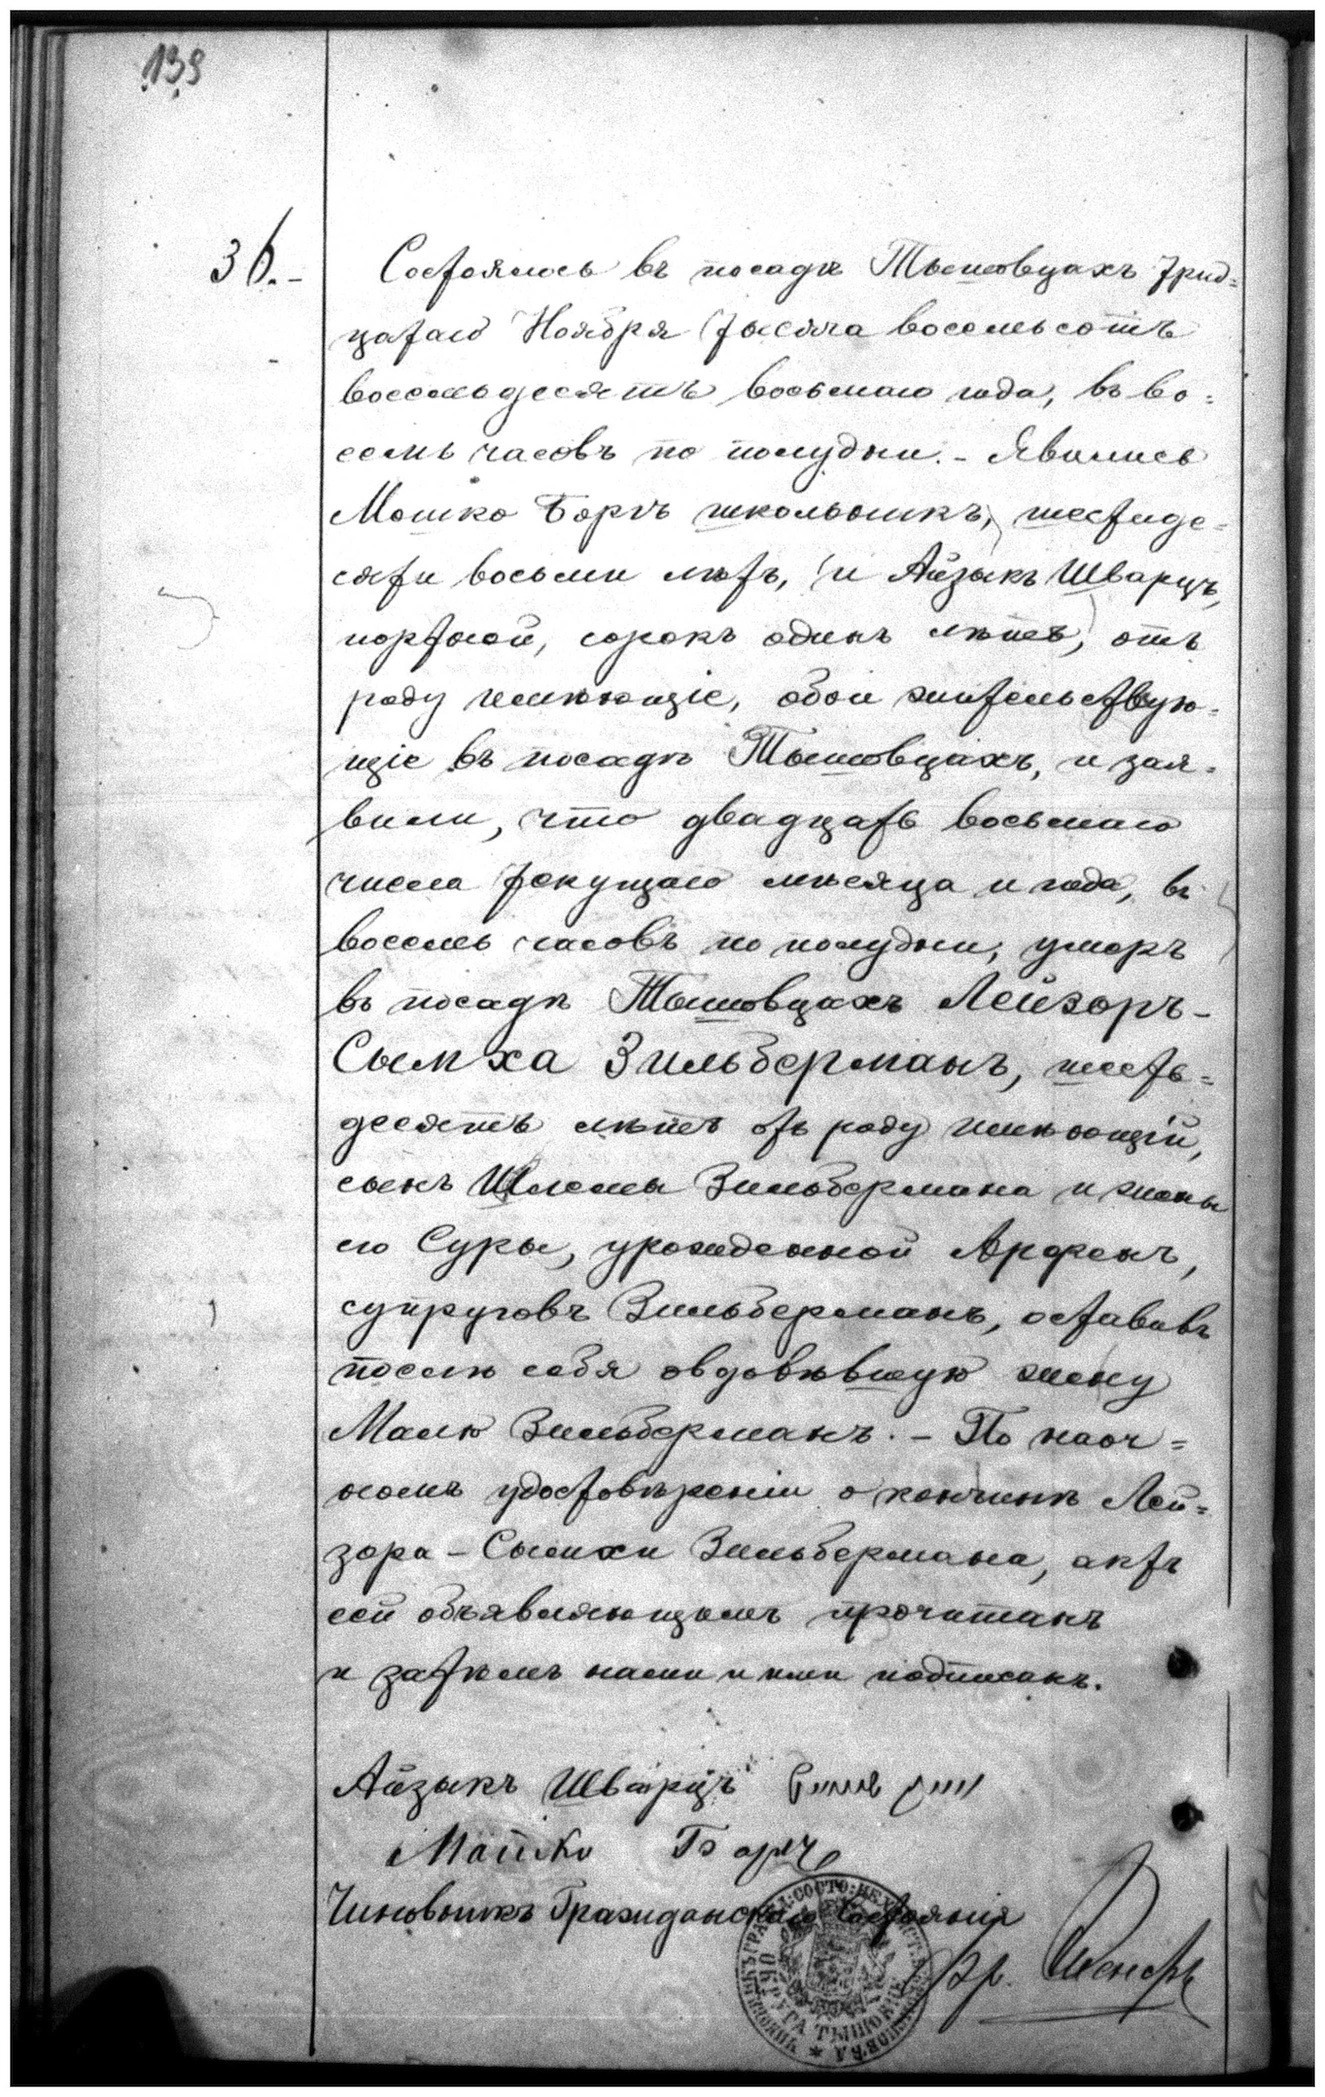 139
36.-
Состоялось въ посадѣ Тышовцахъ трид=
цатаго Ноября тысяча восемьсотъ
восемьдесятъ восьмаго года, въ во=
семь часовъ по полудни. - Явились
Мошко Борчъ школьникъ, шестиде=
сяти восьми лѣтъ, и Айзыкъ Шварцъ,
портной, сорокъ одинъ лѣтъ, отъ
роду имѣющіе, обои жительствую=
щіе въ посадѣ Тышовцахъ, и зая=
вили, что двадцать восьмаго
числа текущаго мѣсяца и года, въ
восемь часовъ по полудни, умеръ
въ посадѣ Тышовцахъ Лейзоръ-
Сымха Зильберманъ, шесть=
десятъ лѣтъ отъ роду имѣющій,
сынъ Шлемы Зильбермана и жены
его Суры, урожденной Арфенъ,
супруговъ Зильберманъ, оставивъ
послѣ себя овдовѣвшую жену
Малю Зильберманъ. - По наоч=
номъ удостовѣреніи о кончинѣ Лей=
зора-Сымхи Зильбермана, актъ
сей объявляющимъ прочитанъ
и затѣмъ нами и ими подписанъ.
Айзыкъ Шварцъ
Мошко Борч
Чиновникъ Гражданскаго Состоянія
ОКРУГА ТЫШОВЕЦ